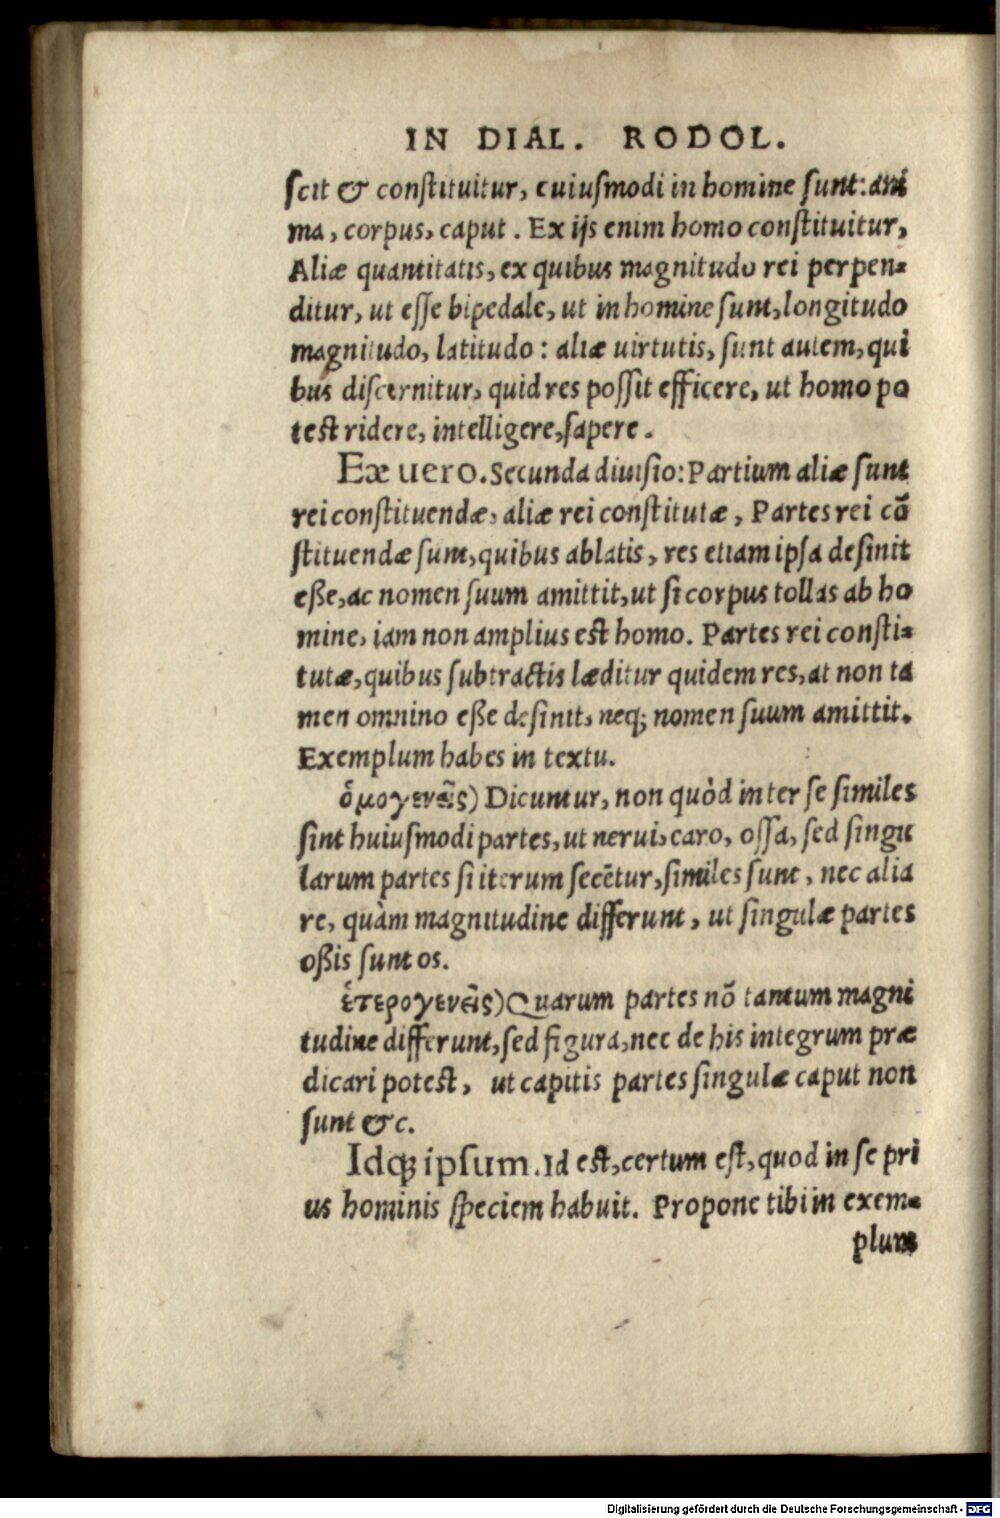 IN DIAL. RODOL.
ſcit & conſtituitur, cuiuſmodi in homine ſunt: ani
ma, corpus, caput. Ex ijs enim homo conſtituitur,
Aliæ quantitatis, ex quibus magnitudo rei perpen-
ditur, ut eſſe bipedale, ut in homine ſunt, longitudo
magnitudo, latitudo: aliæ uirtutis, ſunt autem, qui
bus diſcernitur, quid res poſſit efficere, ut homo po
teſt ridere, intelligere, ſapere.
Eæ uero. Secunda diuiſio: Partium aliæ ſunt
rei conſtituendæ, aliæ rei conſtitutæ, Partes rei cō
ſtituendæ ſunt, quibus ablatis, res etiam ipſa deſinit
eße, ac nomen ſuum amittit, ut ſi corpus tollas ab ho
mine, iam non amplius eſt homo. Partes rei conſti-
tutæ, quibus ſubtractis læditur quidem res, at non ta
men omnino eße deſinit, neq; nomen ſuum amittit.
Exemplum habes in textu.
ὁμογενεῖς) Dicuntur, non quòd inter ſe ſimiles
ſint huiuſmodi partes, ut nerui, caro, oſſa, ſed ſingu
larum partes ſi iterum ſecētur, ſimiles ſunt, nec alia
re, quàm magnitudine differunt, ut ſingulæ partes
oßis ſunt os.
ἑτερογενεῖς) Quarum partes nō tantum magni
tudine differunt, ſed figura, nec de his integrum præ
dicari poteſt, ut capitis partes ſingulæ caput non
ſunt &c.
Idq; ipſum. Id eſt, certum eſt, quod in ſe pri
us hominis ſpeciem habuit. Propone tibi in exem-
plum
Digitalisierung gefördert durch die Deutsche Forschungsgemeinschaft - DFG